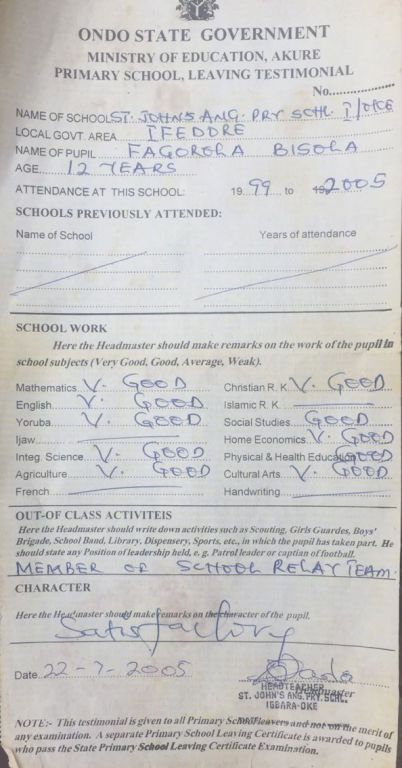 ONDO STATE GOVERNMENT
MINISTRY OF EDUCATION, AKURE
PRIMARY SCHOOL, LEAVING TESTIMONIAL
No...............
NAME OF SCHOOL ST. JOHN'S ANG. PRY SCHL. I/OKE
LOCAL GOVT. AREA IFEDORE
NAME OF PUPIL FAGOROLA BISOLA
AGE 12 YEARS
ATTENDANCE AT THIS SCHOOL: 19 99 to 19 2005
SCHOOLS PREVIOUSLY ATTENDED:
Name of School Years of attendance
SCHOOL WORK
Here the Headmaster should make remarks on the work of the pupil in
school subjects (Very Good, Good, Average, Weak).
Mathematics V. GOOD Christian R. K. V. GOOD
English V. GOOD Islamic R. K.
Yoruba V. GOOD Social Studies GOOD
Ijaw Home Economics V. GOOD
Integ. Science V. GOOD Physical & Health Education GOOD
Agriculture V. GOOD Cultural Arts V. GOOD
French Handwriting
OUT-OF CLASS ACTIVITEIS
Here the Headmaster should write down activities such as Scouting, Girls Guardes, Boys'
Brigade, School Band, Library, Dispensery, Sports, etc., in which the pupil has taken part. He
should state any Position of leadership held, e. g. Patrol leader or captian of football.
MEMBER OF SCHOOL RELAY TEAM.
CHARACTER
Here the Headmaster should make remarks on the character of the pupil.
Satisfactory
Date 22-7-2005
HEADTEACHER
Headmaster
ST. JOHN'S ANG. PRY. SCHL.
IGBARA-OKE
NOTE:- This testimonial is given to all Primary School leavers and not on the merit of
any examination. A separate Primary School Leaving Certificate is awarded to pupils
who pass the State Primary School Leaving Certificate Examination.